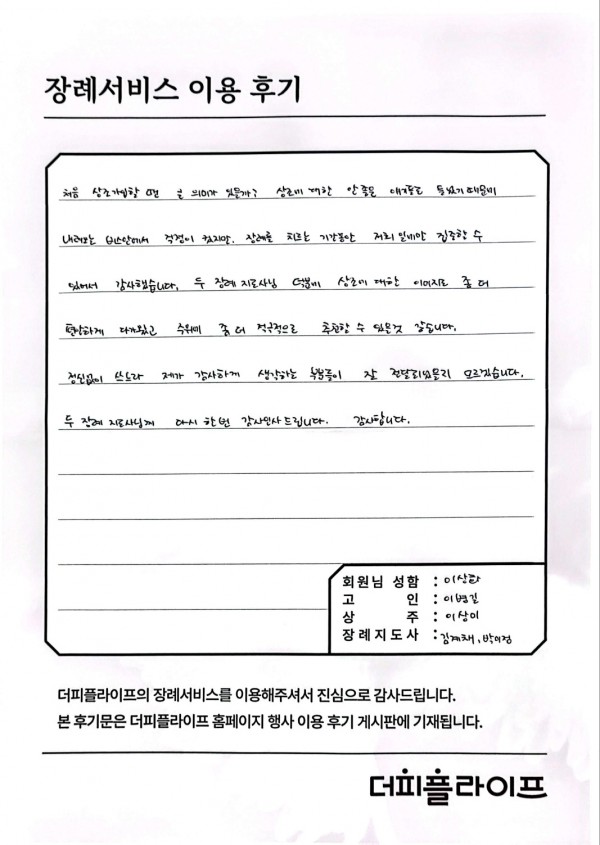 장례서비스 이용 후기
처음 상조가입할 땐 큰 의미가 있을까? 상조에 대한 안 좋은 얘기들도 들었기 때문에
내려오는 버스안에서 걱정이 컸지만, 장례를 치르는 기간동안 저희 일에만 집중할 수
있어서 감사했습니다. 두 장례 지도사님 덕분에 상조에 대한 이미지도 좀 더
편안하게 다가왔고 주위에 좀 더 적극적으로 추천할 수 있을것 같습니다.
정신없이 쓰느라 제가 감사하게 생각하는 부분들이 잘 전달되었을지 모르겠습니다.
두 장례 지도사님께 다시 한번 감사인사드립니다. 감사합니다.
회원님 성함 :
고 인 : 이병길
상 주 : 이상미
장례지도사 : 김계채, 박이정
더피플라이프의 장례서비스를 이용해주셔서 진심으로 감사드립니다.
본 후기문은 더피플라이프 홈페이지 행사 이용 후기 게시판에 기재됩니다.
더피플라이프